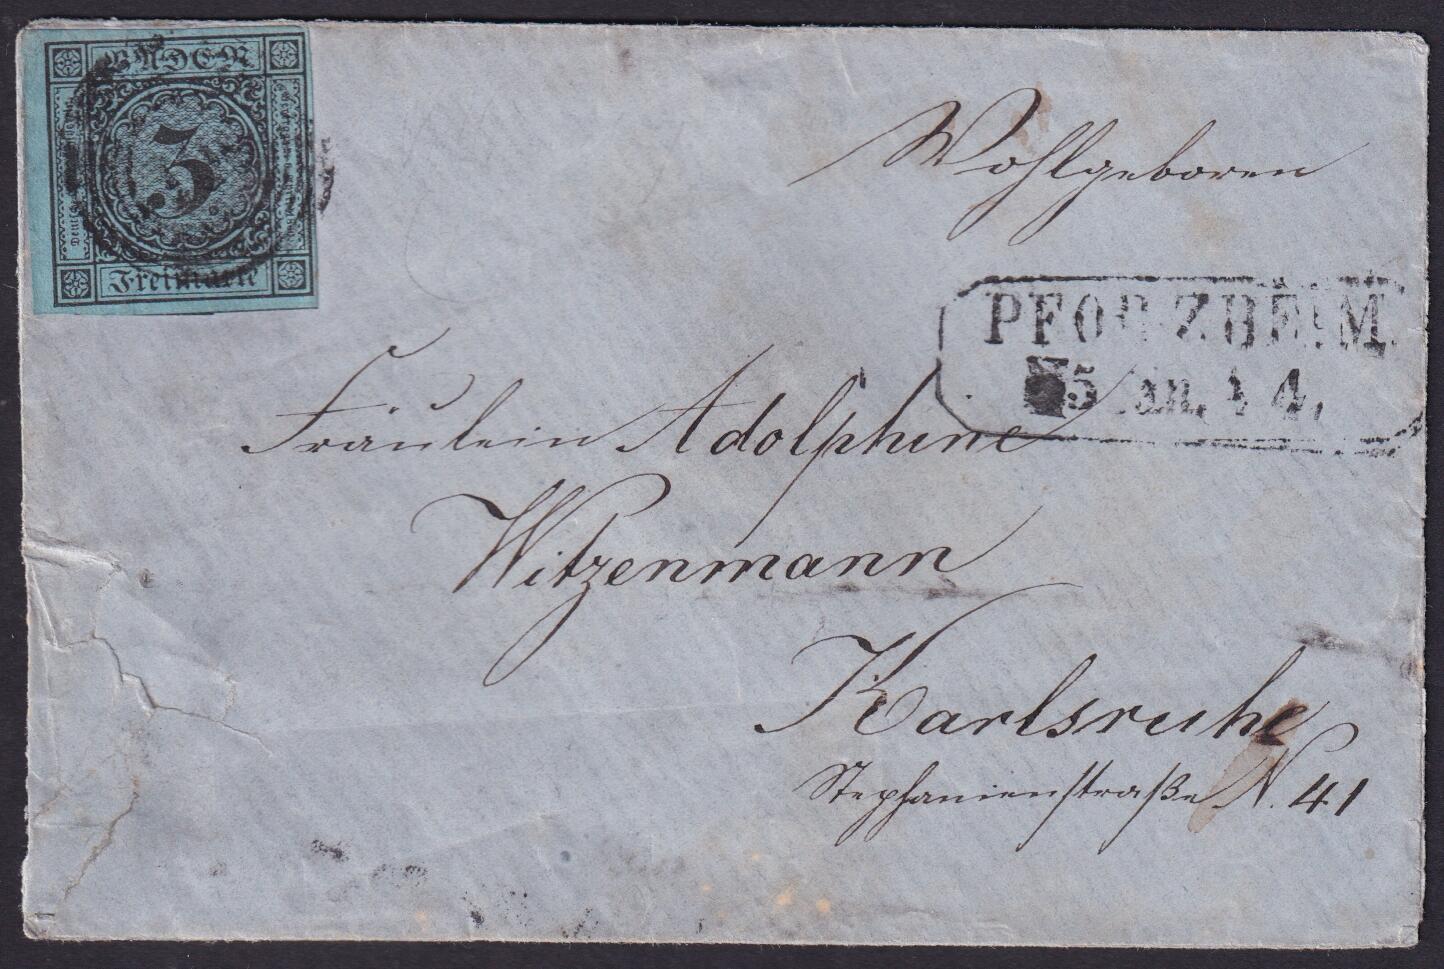 BADEN
3
Freimarke
Wohlgeboren
PFORZHEIM.
Fräulein Adolphine
Witzenmann
Karlsruhe
Stephanienstraße N. 41